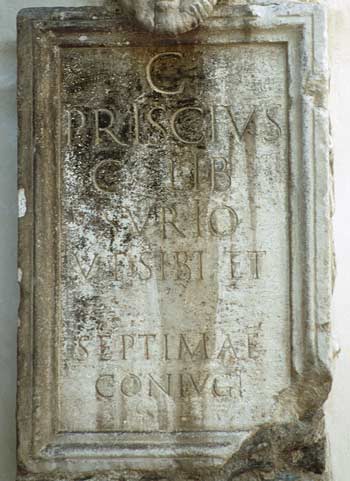 C
PRISCIVS
C LIB
SVRIO
V F SIBI ET
SEPTIMAE
CONIVGI